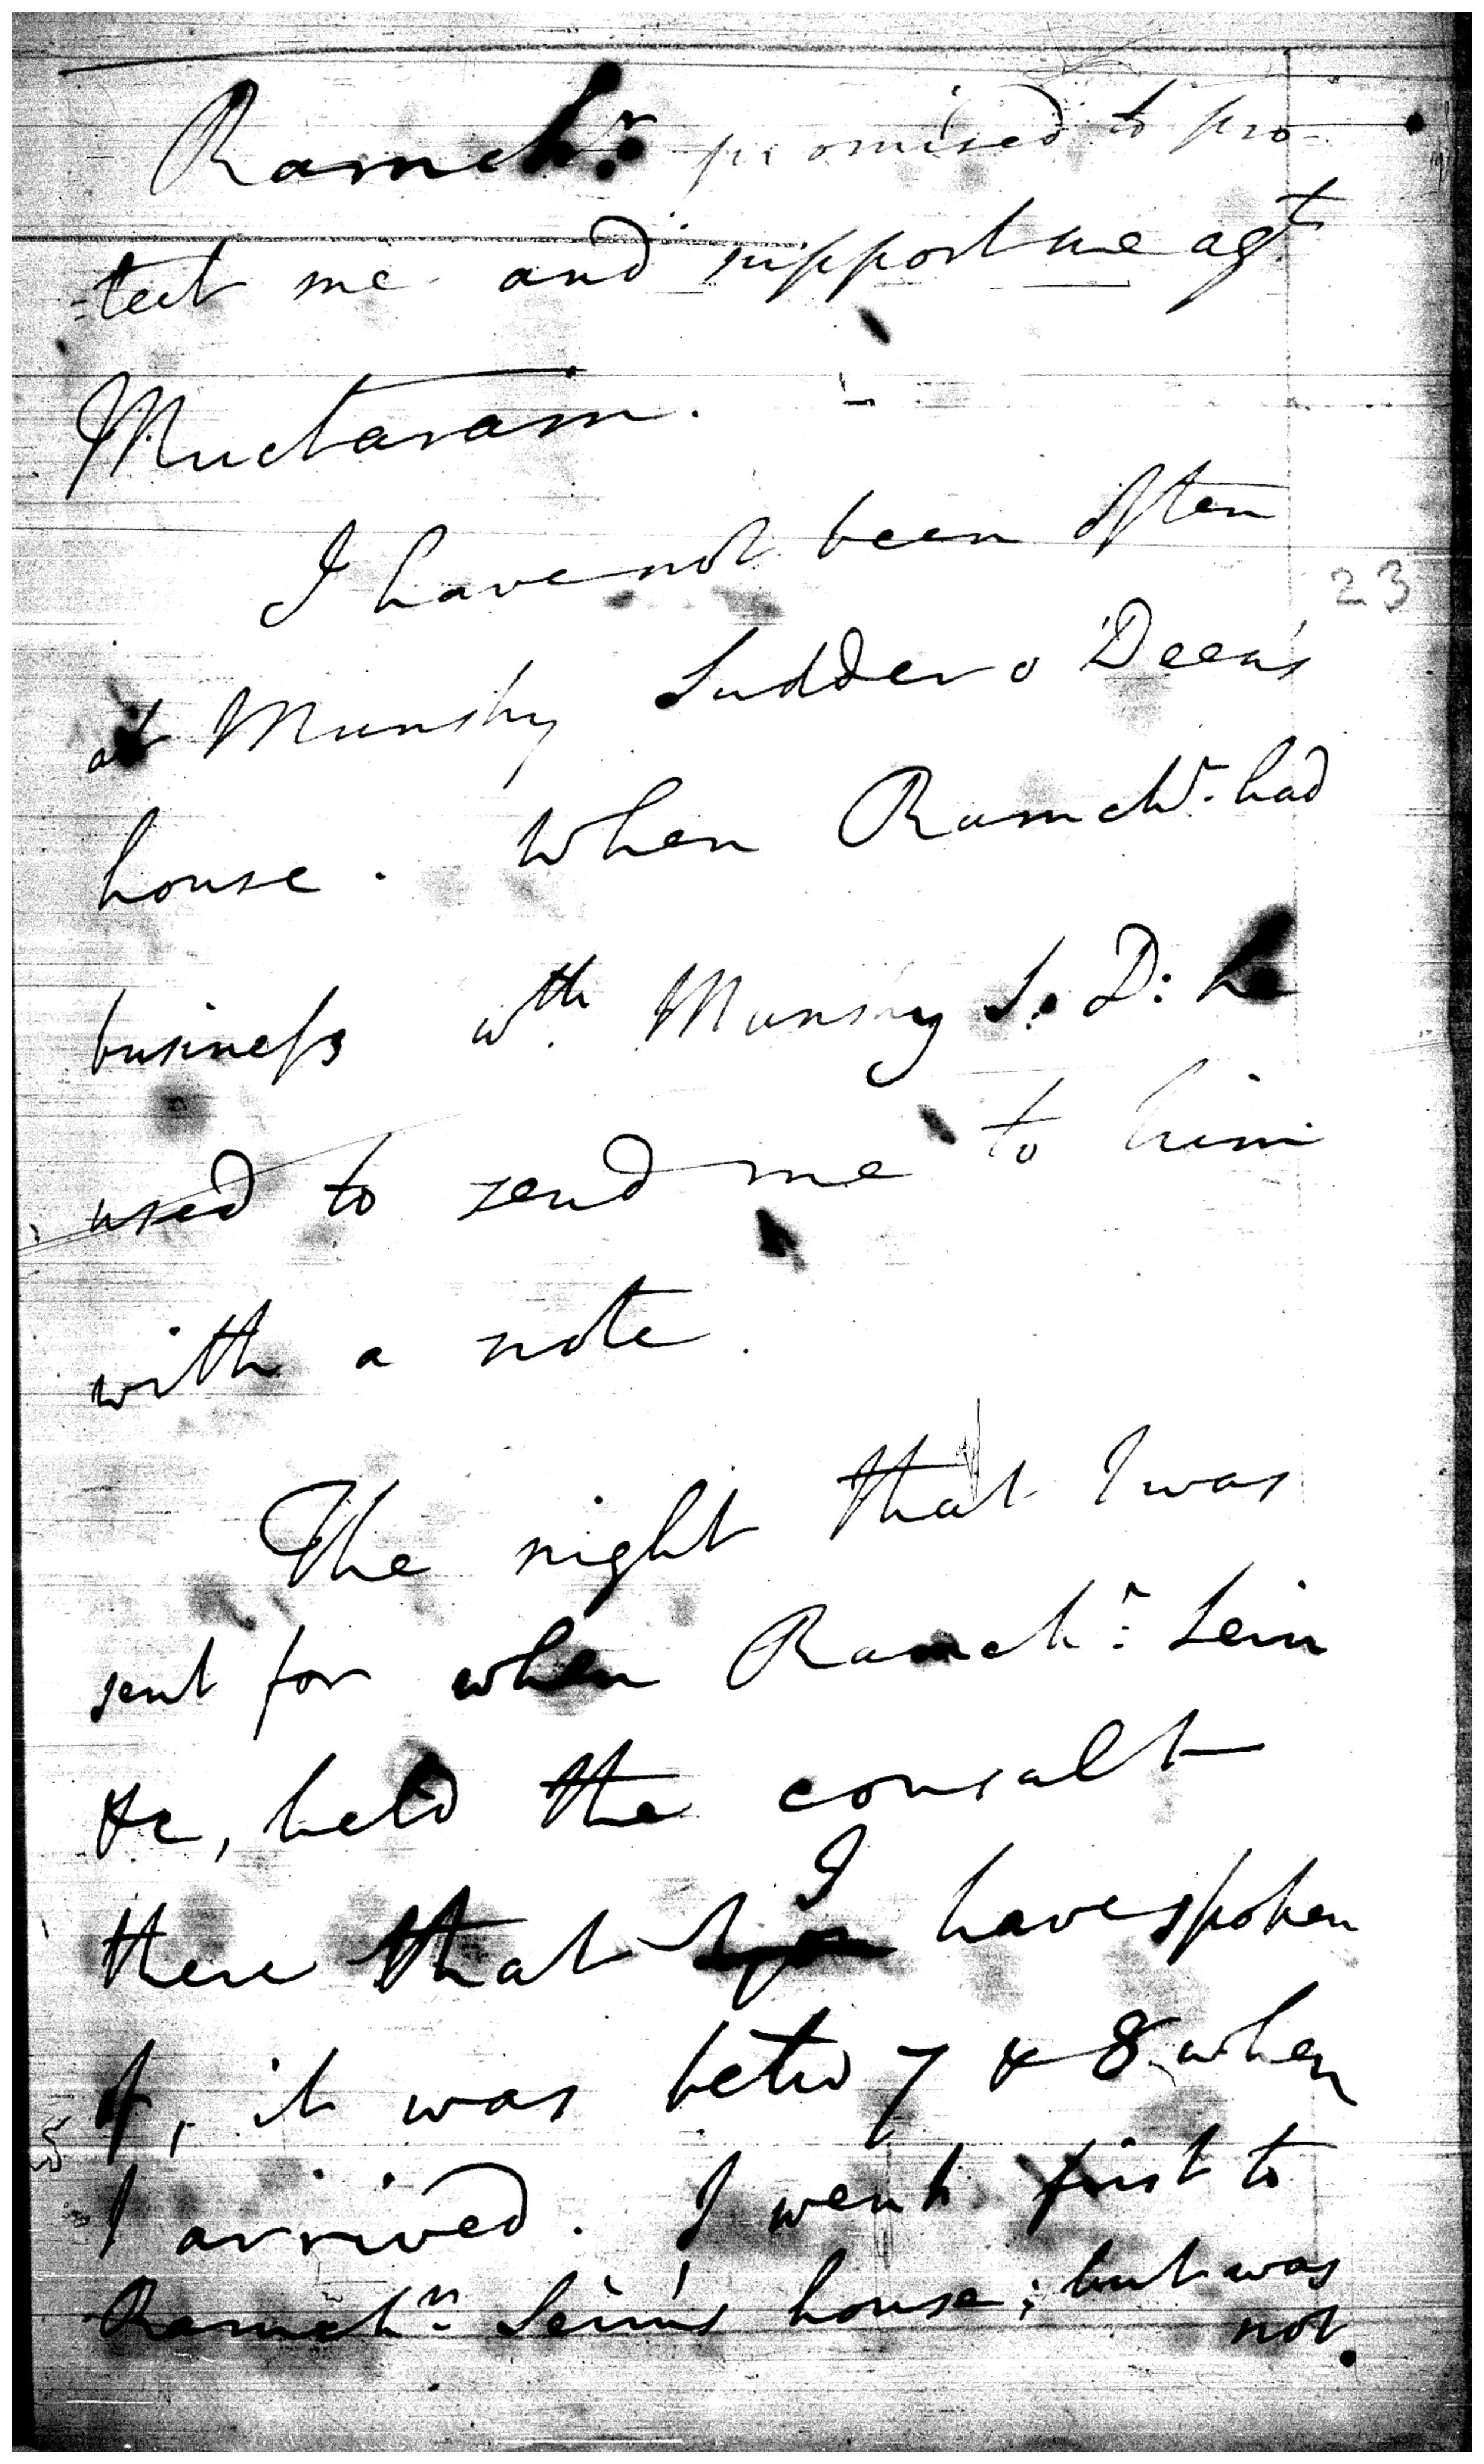 Ramch.r promised to pro-
=tect me and support me ag.t
Muctaram.
I have not been often
23
at Munshy Sudder o Deen's
house. When Ramch.r had
business w.th Munshy S: D: he
used to send me to him
with a note.
The night that I was
sent for when Ramch.r Sein
&c, held the consult
I
there that have spoken
of, it was betw 7 & 8 when
I arrived. I went first to
Ramch.r Sein's house; but was
not.